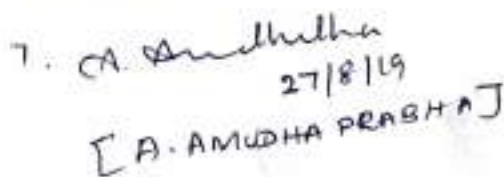 7. A. Amudha
27/8/19
[A. AMUDHA PRABHA]